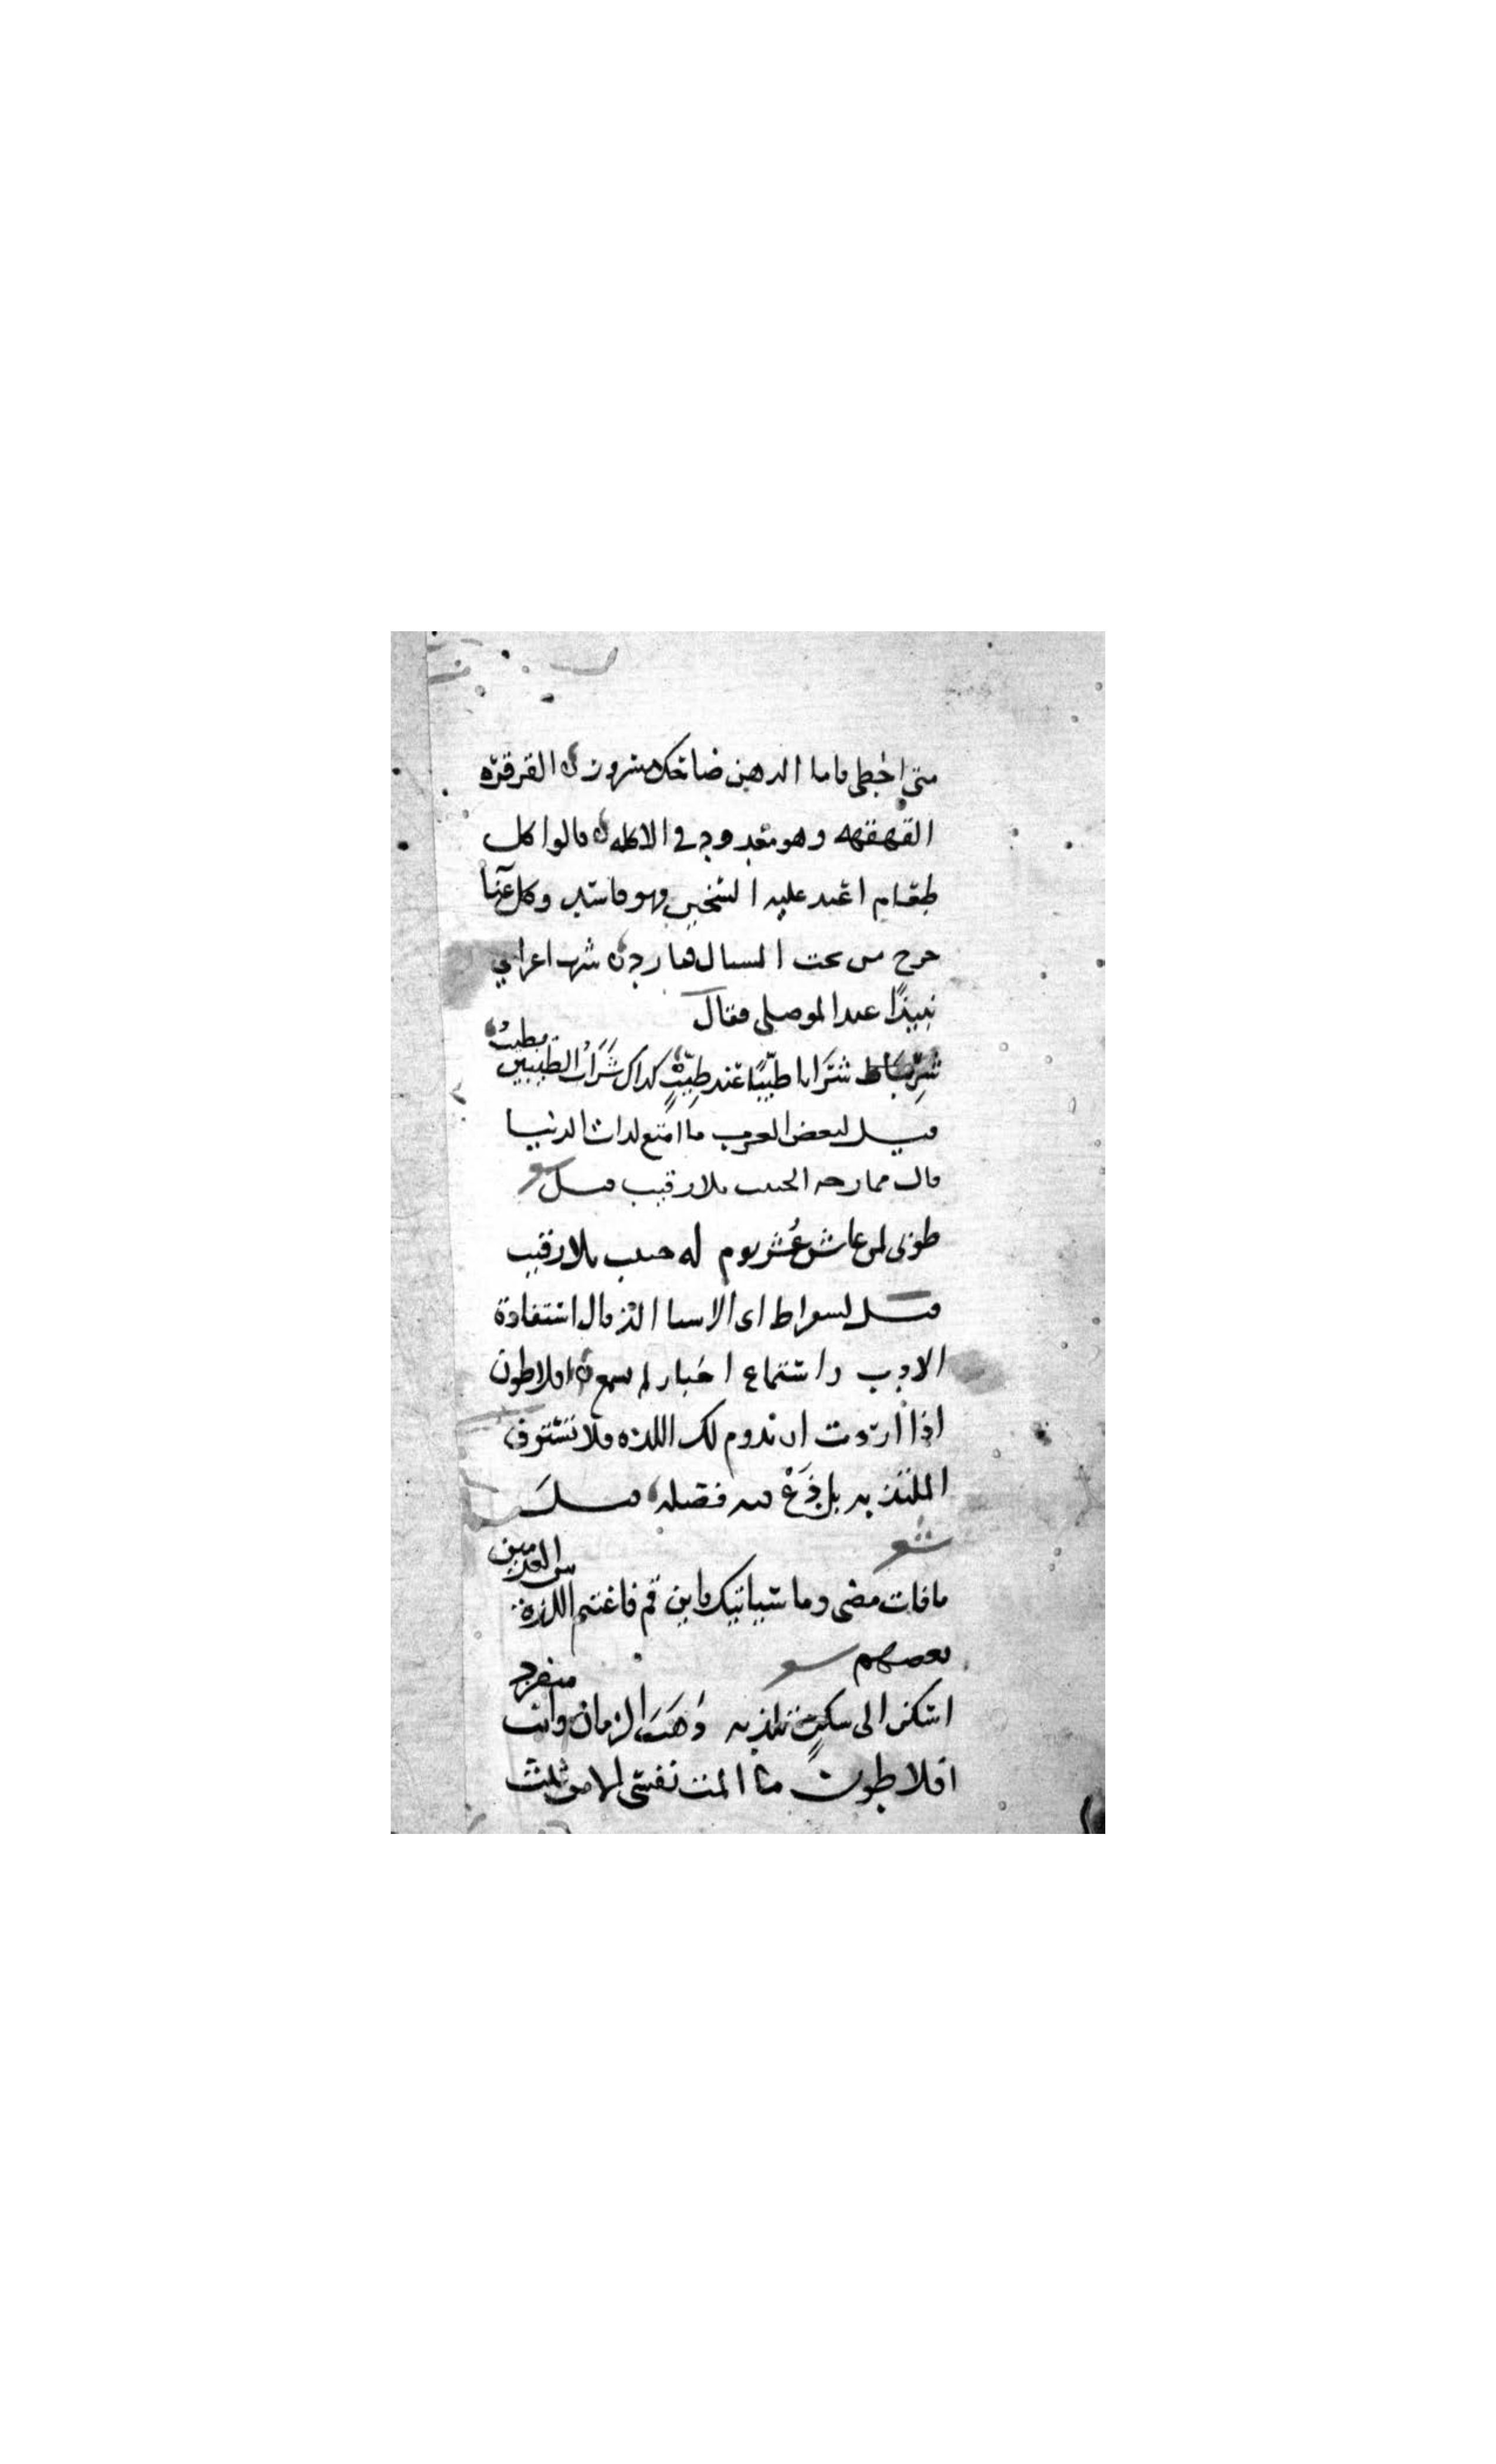 متى اخطى فاما الدهن ضاحك مسرور القرقرة
القهقهه وهو معدود في الاكله قالوا كل
طعام اعيد عليه التسخين فهو فاسد وكل غنا
خرج من تحت السبال فبارد شرب اعرابي
نبيذا عند الموصلي فقال
شربنا شرابا طيبا عند طيب كذاك شراب الطيبين يطيب
قيل لبعض العرب ما امتع لذات الدنيا
قال ممازحه الحبيب بلا رقيب قيل شعر
طوبى لمن عاش عشر يوم له حبيب بلا رقيب
قيل لسقراط اى الاشيا الذ قال استفادة
الادب واستماع اخبار لم تسمع افلاطون
اذا اردت ان تدوم لك اللذه فلا تستوف
الملتذ به بل دع فيه فضله قيل
شعر
ما فات مضى وما سياتيك فاين قم فاغتنم اللذة بين العدمين
بعضهم شعر
اسكن الى سكن تلذ به ذهب الزمان وانت منفرد
افلاطون ما المت نفسي الا من ثلث